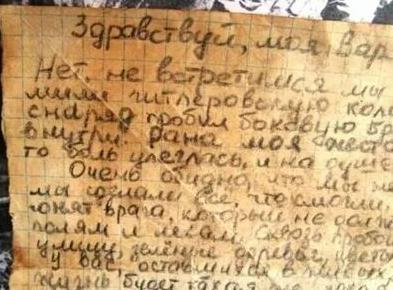 Здравствуй, моя Вар
Нет, не встретимся мы
мили гитлеровскую коло
снаряд пробил боковую бр
внутри. Рана моя жесто
то боль улеглась, и на душе
Очень обидно, что мы не
мы сделали все, что смогли,
гонят врага, который не долж
полям и лесам. Сквозь пробои
улицу, зелёные деревья, цветы
У вас, оставшихся в живых,
жизнь будет такая же